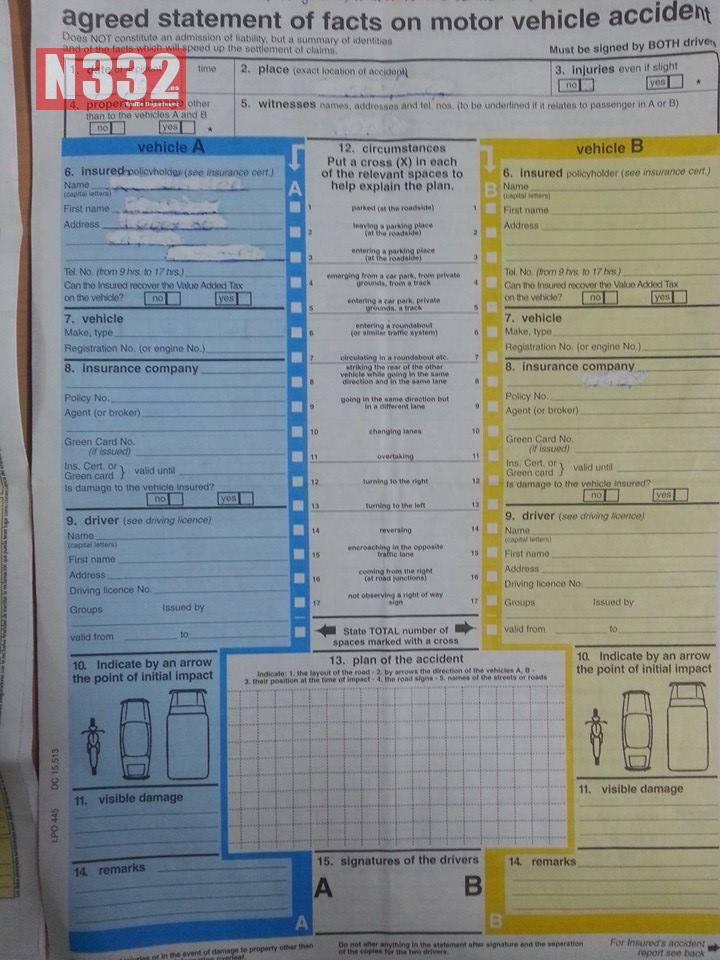 agreed statement of facts on motor vehicle accident
Does NOT constitute an admission of liability, but a summary of identities
and of the facts which will speed up the settlement of claims.
Must be signed by BOTH drivers
N332
.es
Traffic Department
1. date of accident time
2. place (exact location of accident)
3. injuries even if slight
no yes *
4. property other
than to the vehicles A and B
no yes *
5. witnesses names, addresses and tel. nos. (to be underlined if it relates to passenger in A or B)
vehicle A
6. insured policyholder (see insurance cert.)
Name
(capital letters)
First name
Address
Tel. No. (from 9 hrs. to 17 hrs.)
Can the Insured recover the Value Added Tax
on the vehicle? no yes
7. vehicle
Make, type
Registration No. (or engine No.)
8. insurance company
Policy No.
Agent (or broker)
Green Card No.
(if issued)
Ins. Cert. or
Green card } valid until
Is damage to the vehicle insured?
no yes
9. driver (see driving licence)
Name
(capital letters)
First name
Address
Driving licence No.
Groups Issued by
valid from to
10. Indicate by an arrow
the point of initial impact
11. visible damage
14. remarks
A
12. circumstances
Put a cross (X) in each
of the relevant spaces to
help explain the plan.
A B
1 parked (at the roadside) 1
2 leaving a parking place
(at the roadside) 2
3 entering a parking place
(at the roadside) 3
4 emerging from a car park, from private
grounds, from a track 4
5 entering a car park, private
grounds, a track 5
6 entering a roundabout
(or similar traffic system) 6
7 circulating in a roundabout etc. 7
8 striking the rear of the other
vehicle while going in the same
direction and in the same lane 8
9 going in the same direction but
in a different lane 9
10 changing lanes 10
11 overtaking 11
12 turning to the right 12
13 turning to the left 13
14 reversing 14
15 encroaching in the opposite
traffic lane 15
16 coming from the right
(at road junctions) 16
17 not observing a right of way
sign 17
State TOTAL number of
spaces marked with a cross
13. plan of the accident
Indicate: 1. the layout of the road - 2. by arrows the direction of the vehicles A, B -
3. their position at the time of impact - 4. the road signs - 5. names of the streets or roads
15. signatures of the drivers
A B
vehicle B
6. insured policyholder (see insurance cert.)
Name
(capital letters)
First name
Address
Tel. No. (from 9 hrs. to 17 hrs.)
Can the Insured recover the Value Added Tax
on the vehicle? no yes
7. vehicle
Make, type
Registration No. (or engine No.)
8. insurance company
Policy No.
Agent (or broker)
Green Card No.
(if issued)
Ins. Cert. or
Green card } valid until
Is damage to the vehicle insured?
no yes
9. driver (see driving licence)
Name
(capital letters)
First name
Address
Driving licence No.
Groups Issued by
valid from to
10. Indicate by an arrow
the point of initial impact
11. visible damage
14. remarks
B
LPO 445 DC 15,513
injuries or in the event of damage to property other than
overleaf.
Do not alter anything in the statement after signature and the separation
of the copies for the two drivers.
For Insured's accident
report see back